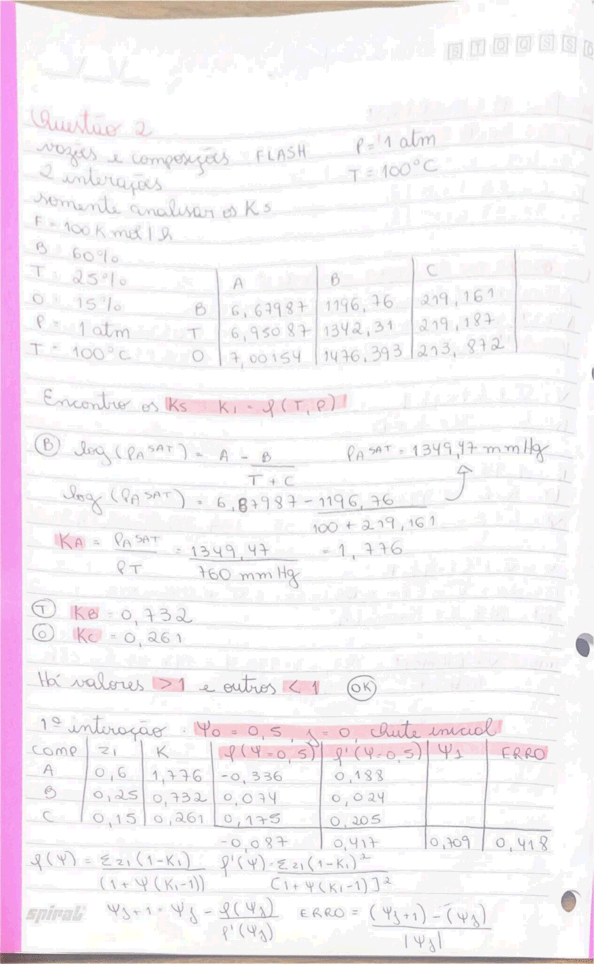 S T Q Q S S D
Questão 2
vazões e composições FLASH P = 1 atm
2 interações T = 100°C
somente analisar os Ks
F = 100 Kmol/h
B = 60%
T = 25%
O = 15%
P = 1 atm
T = 100°C
A B C
B 6,67987 1196,76 219,161
T 6,95087 1342,31 219,187
O 7,00154 1476,393 213,872
Encontro os Ks Ki = f(T,P)
(B) log(PA SAT) = A - B / T + C PA SAT = 1349,47 mmHg
log(PA SAT) = 6,87987 - 1196,76 / 100 + 219,161
KA = PA SAT / PT = 1349,47 / 760 mmHg = 1,776
(T) KB = 0,732
(O) KC = 0,261
Há valores > 1 e outros < 1 (OK)
1º interação: Ψ0 = 0,5, j = 0 chute inicial
COMP zi K f(Ψ=0,5) f'(Ψ=0,5) Ψj ERRO
A 0,6 1,776 -0,336 0,188
B 0,25 0,732 0,074 0,024
C 0,15 0,261 0,175 0,205
-0,087 0,417 0,709 0,418
f(Ψ) = Σzi(1-Ki) / (1+Ψ(Ki-1)) f'(Ψ) = Σzi(1-Ki)² / [1+Ψ(Ki-1)]²
Ψj+1 = Ψj - f(Ψj) / f'(Ψj) ERRO = (Ψj+1) - (Ψj) / |Ψj|
spiral